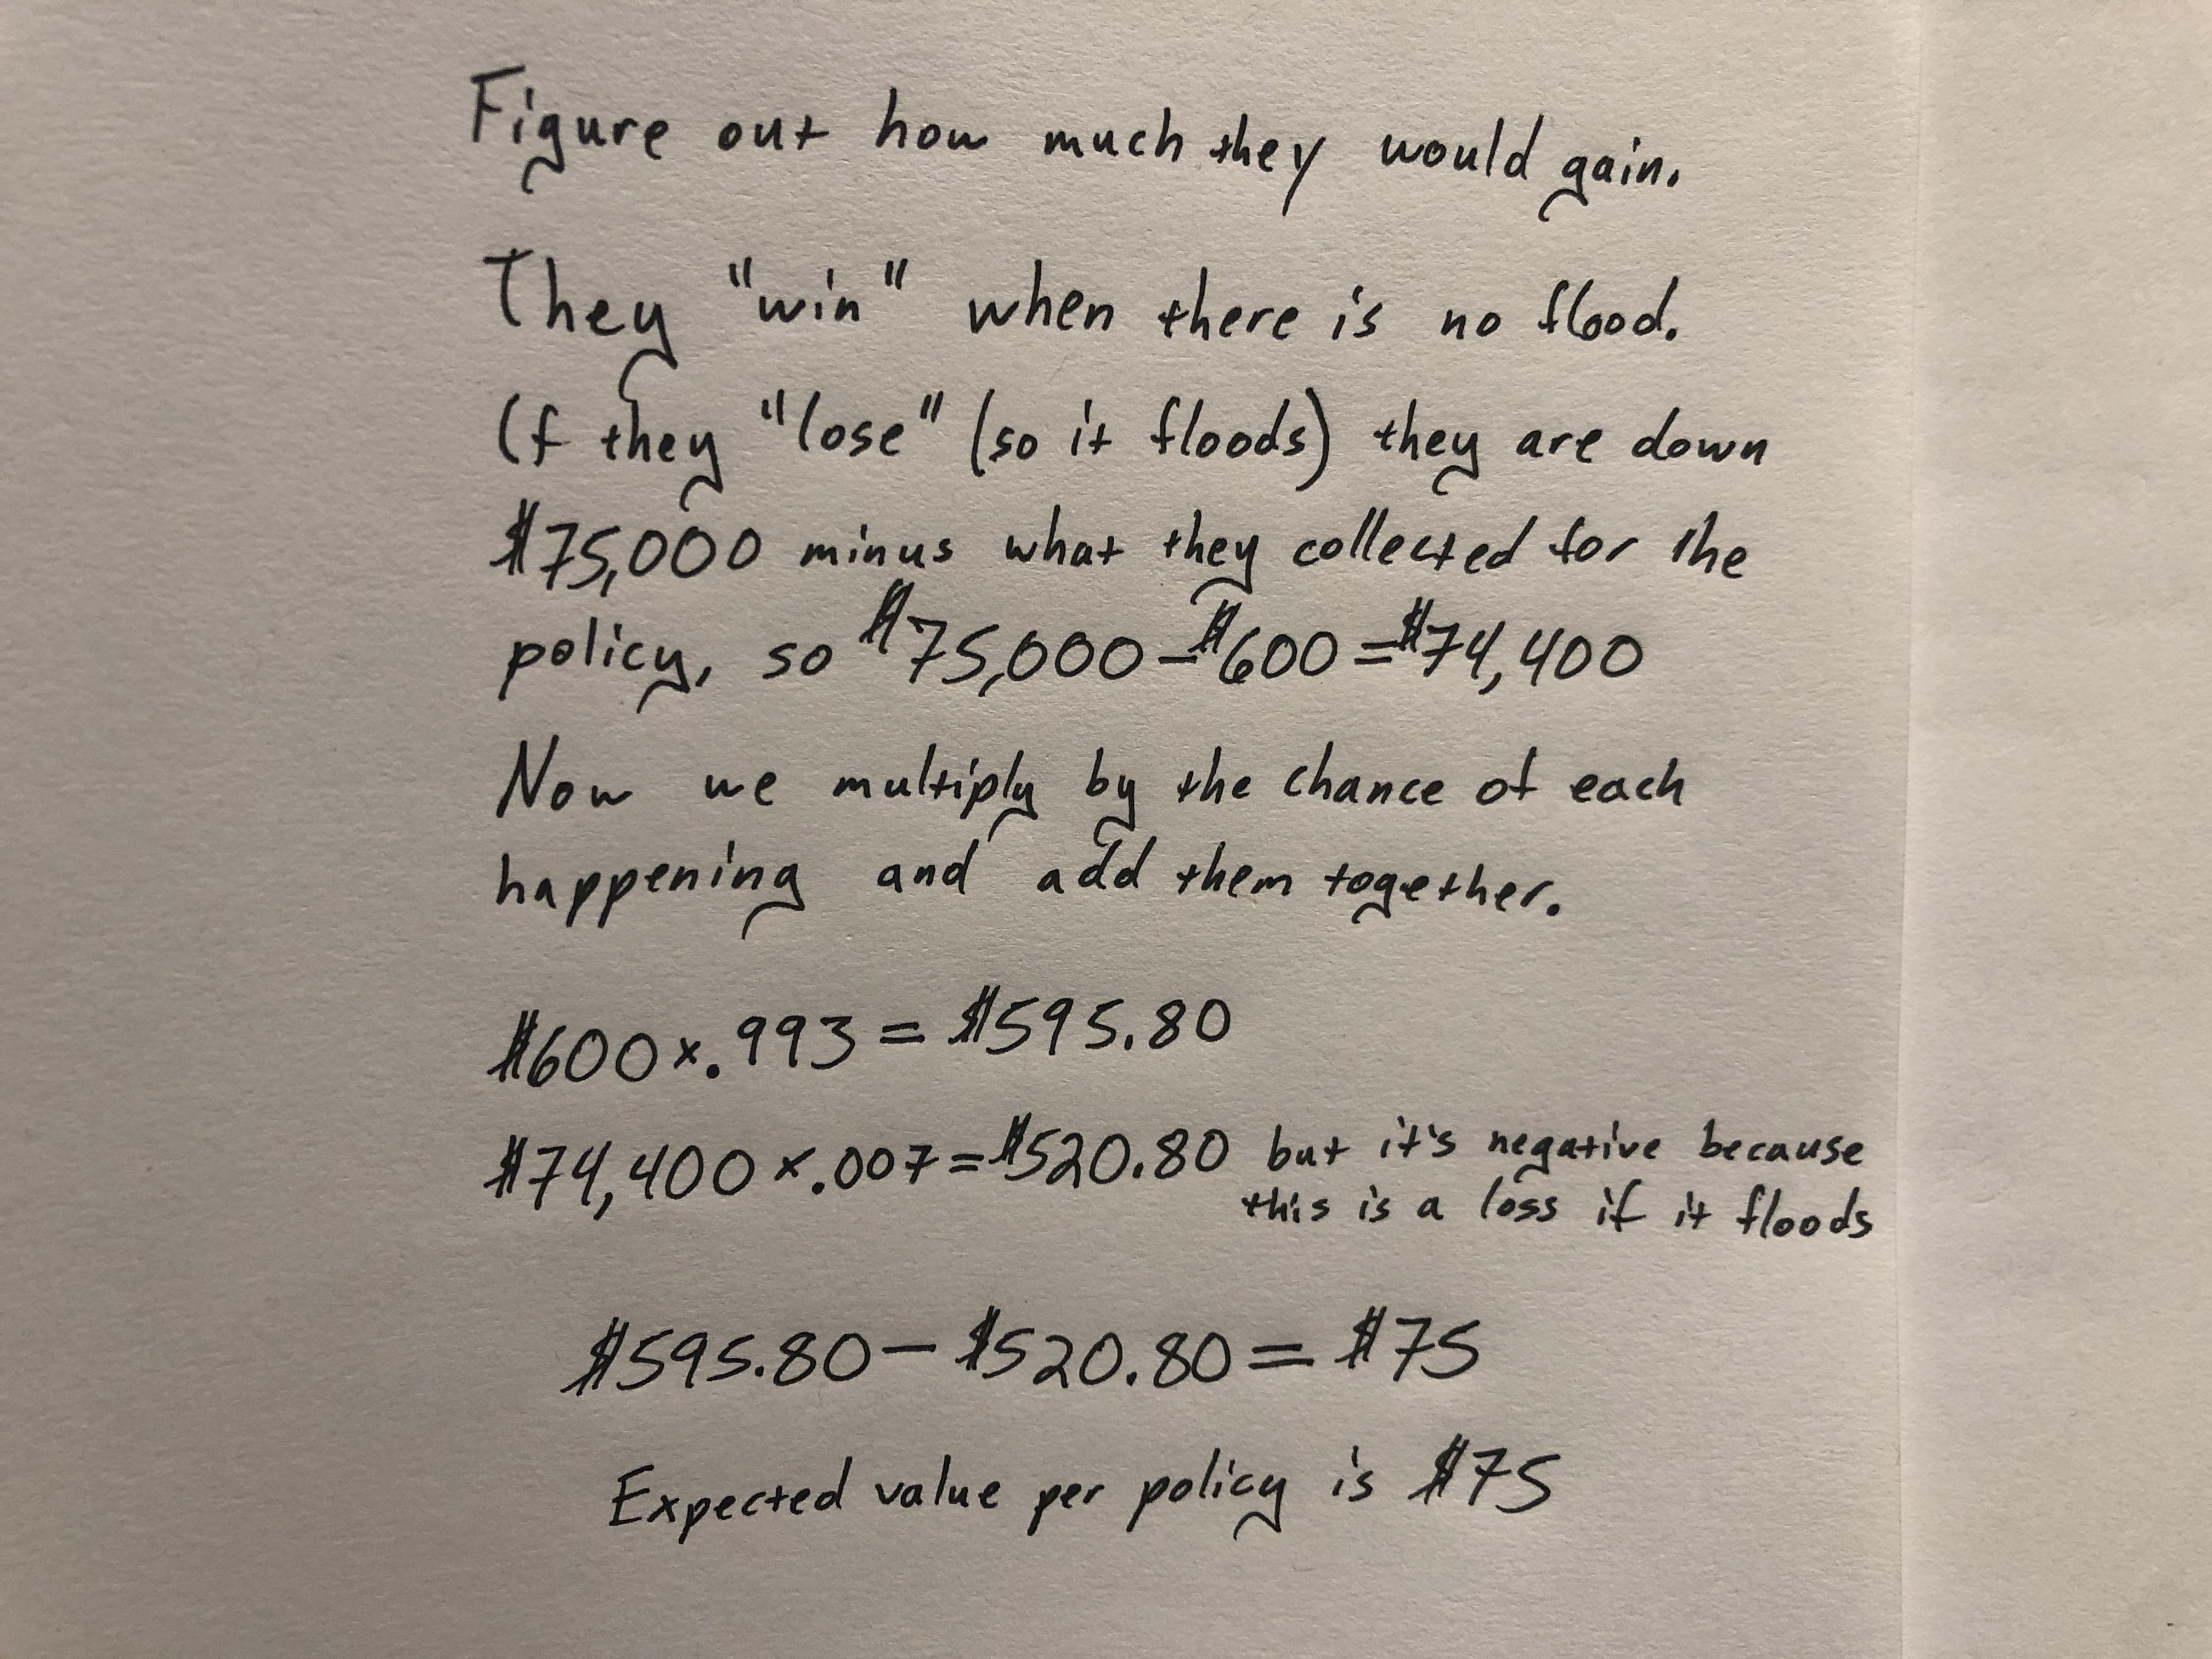 Figure out how much they would gain.
They "win" when there is no flood.
If they "lose" (so it floods) they are down
$75,000 minus what they collected for the
policy, so $75,000 - $600 = $74,400
Now we multiply by the chance of each
happening and add them together.
$600 x .993 = $595.80
$74,400 x .007 = $520.80 but it's negative because
this is a loss if it floods
$595.80 - $520.80 = $75
Expected value per policy is $75